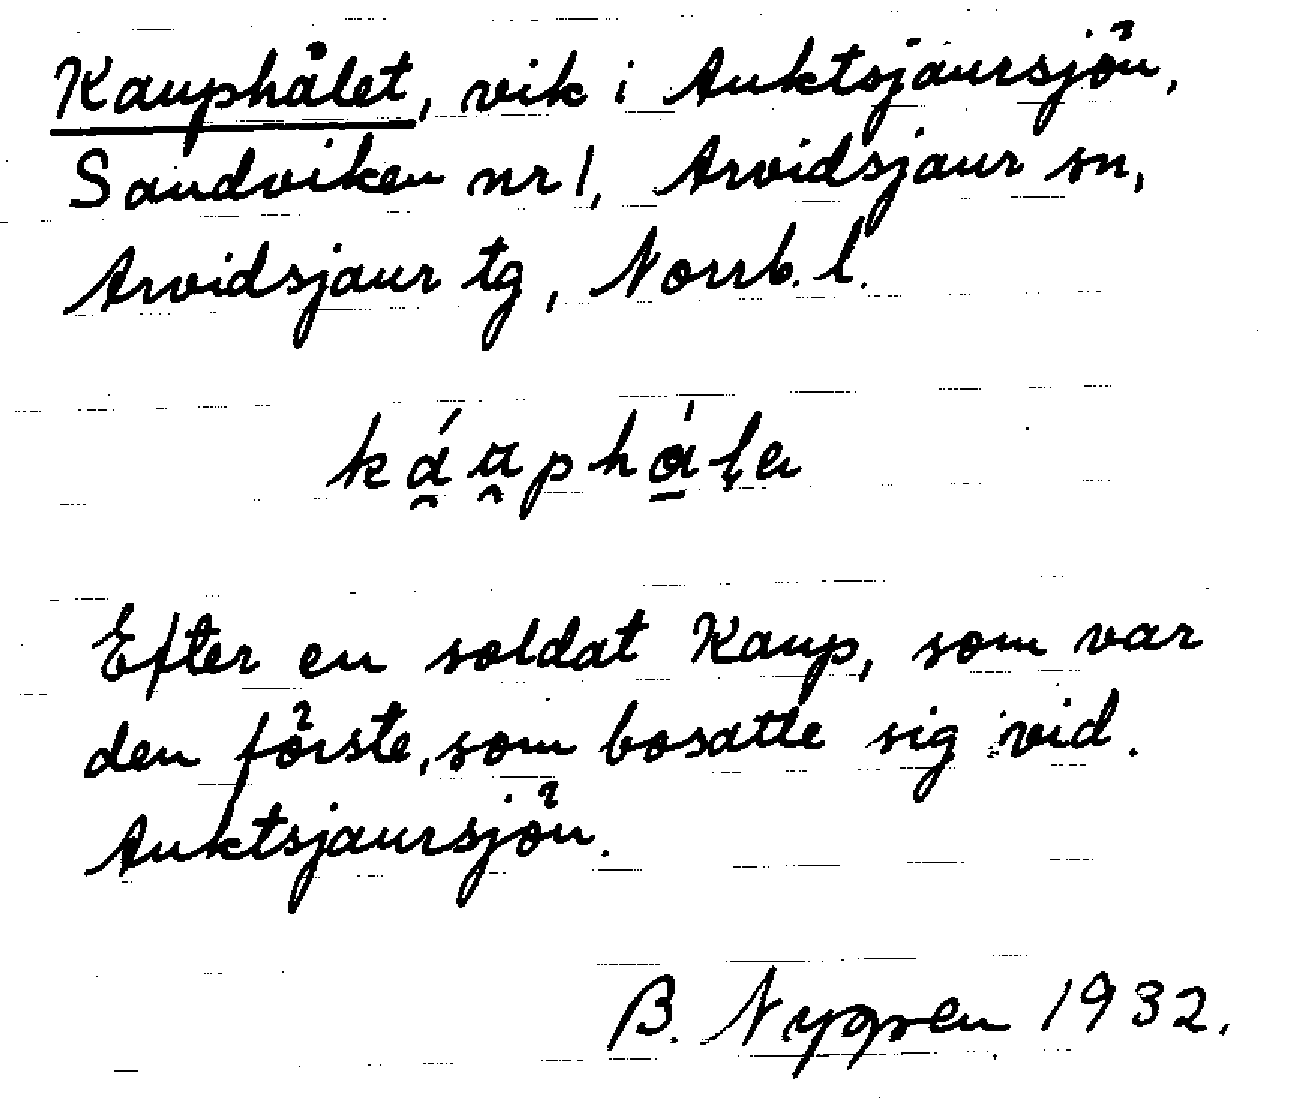 Kauphålet, vik i Auktsjaursjön,
Sandviken nr 1, Arvidsjaur sn,
Arvidsjaur tg, Norrb. l.
káu̯phá̱la
Efter en soldat Kaup, som var
den förste, som bosatte sig vid.
Auktsjaursjön.
B. Nygren 1932.